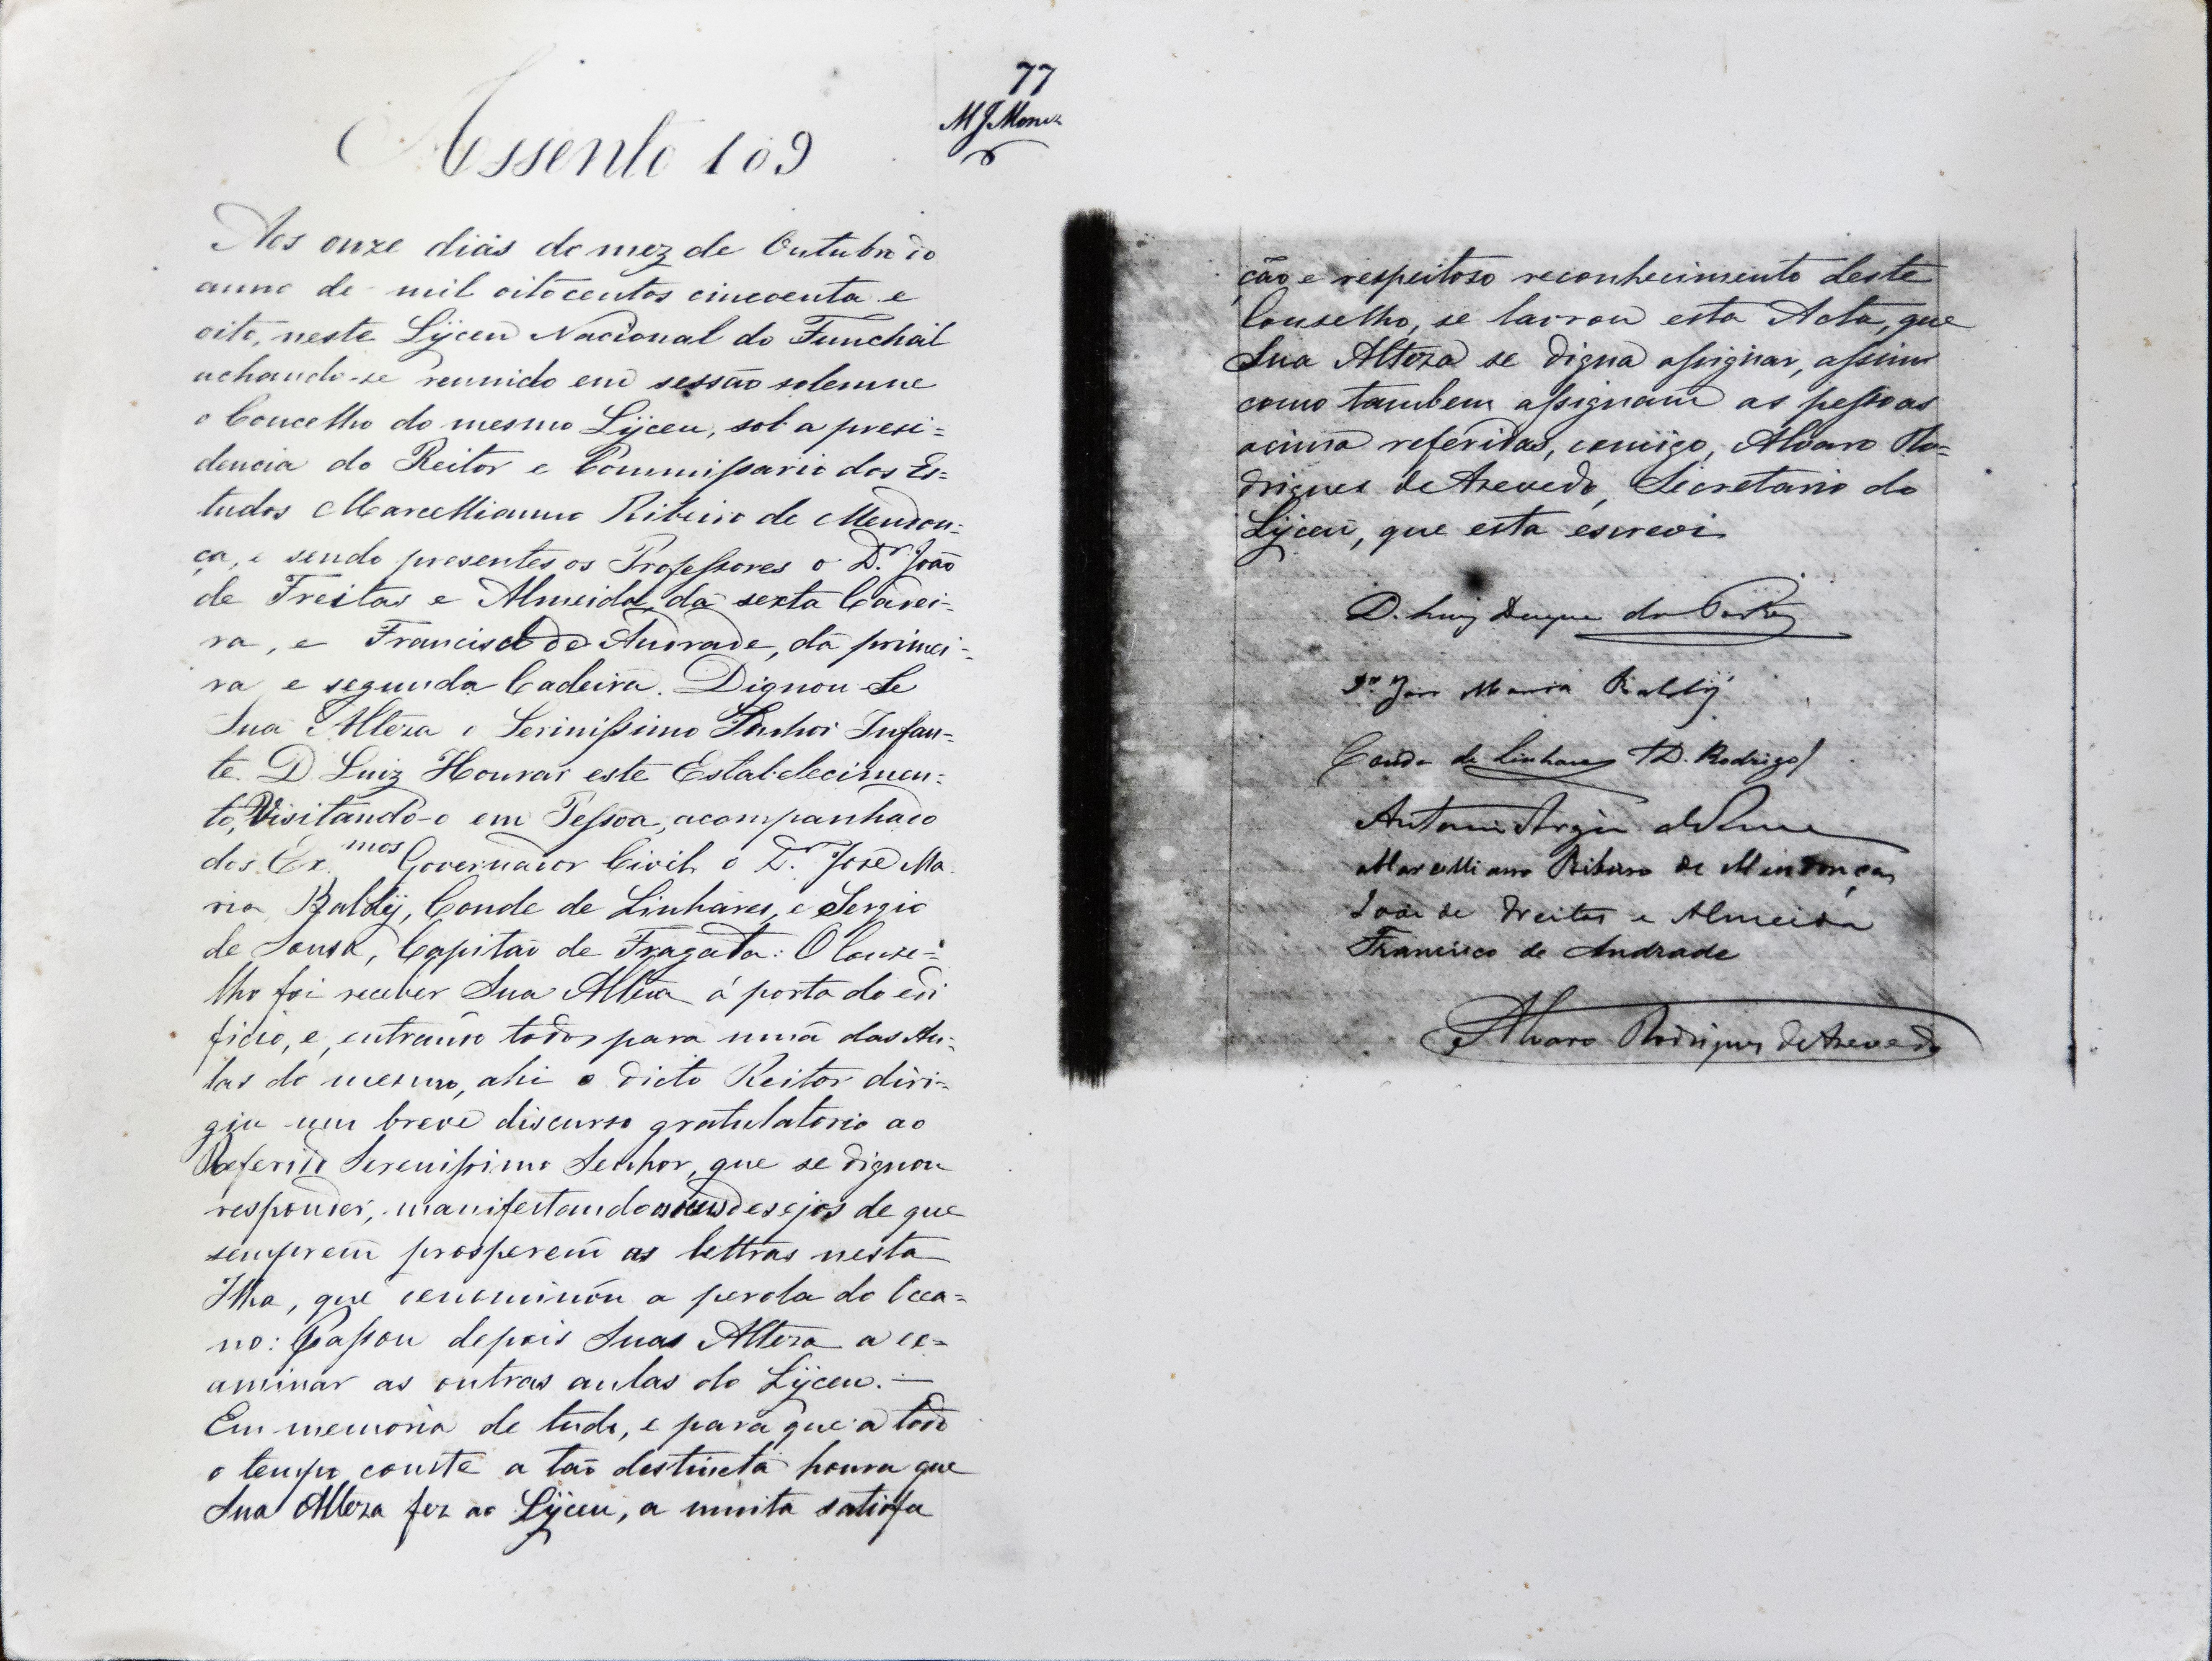 77
MJMoniz
Assento 109
Aos onze dias do mez de Outubro do
anno de mil oitocentos cincoenta e
oito, neste Lÿceu Nacional do Funchal
achando-se reunido em sessão solemne
o Concelho do mesmo Lÿceu, sob a presi=
dencia do Reitor e Commissario dos Es=
tudos Marcellianno Ribeiro de Mendon=
ça, e sendo presentes os Professores o Dr. João
de Freitas e Almeida, da sexta Cadei=
ra, e Francisco de Andrade, da primei=
ra e segunda Cadeira. Dignou-Se
Sua Alteza o Serinissimo Senhor Infan=
te D. Luiz Honrar este Estabelecimen=
to, Visitando-o em Pessoa, acompanhado
dos Ex.mos Governador Civil o Dr. José Ma
ria Baldÿ, Conde de Linhares, e Sergio
de Sousa, Capitão de Fragata: O Conse=
lho foi receber Sua Alteza á porta do edi
ficio, e, entrando todos para uma das Au=
las do mesmo, ahi o dicto Reitor diri=
giu um breve discurso gratulatorio ao
Referido Serenissimo Senhor, que se dignou
responder, manifestando os seus desejos de que
semprem prosperem as lettras nesta
Ilha, que denominou a perola do Ocea=
no: Passou depois Suas Alteza a ex=
aminar as outras aulas do Lÿceu. —
Em memoria de tudo, e para que a todo
o tempo conste a tão destincta honra que
Sua Alteza fez ao Lÿceu, a muita satisfa
ção e respeitoso reconhecimento deste
Conselho, se lavrou esta Acta, que
Sua Alteza se digna assignar, assim
como tambem assignam as pessoas
acima referidas, comigo, Alvaro Ro=
drigues de Azevedo, Secretario do
Lÿceu, que esta escrevi
D. Luiz Duque do Porto
Dr. José Maria Baldÿ
Conde de Linhares (D. Rodrigo)
Antonio Sergio de Souza
Marcelliano Ribeiro de Mendonça
João de Freitas e Almeida
Francisco de Andrade
Alvaro Rodrigues de Azevedo